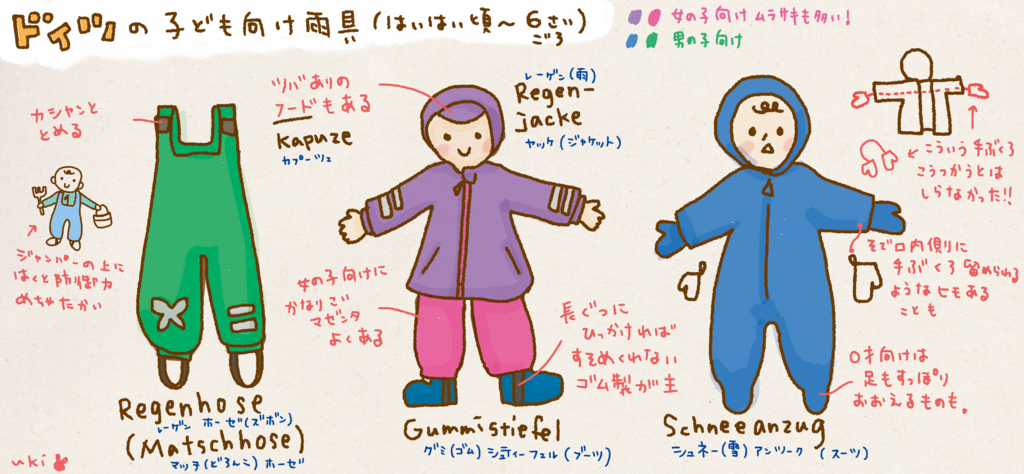 ドイツの子ども向け雨具(はいはい頃〜6さい)
ごろ
女の子向け ムラサキも多い!
男の子向け
カシャンと
とめる
ジャンパーの上に
はくと防御力
めちゃたかい
Regenhose
レーゲン ホーゼ(ズボン)
(Matschhose)
マッチ(どろんこ) ホーゼ
uki
ツバありの
フードもある
Kapuze
カプーツェ
レーゲン(雨)
Regen-
jacke
ヤッケ(ジャケット)
女の子向けに
かなりこい
マゼンタ
よくある
長ぐつに
ひっかければ
すそめくれない
ゴム製が主
Gummistiefel
グミ(ゴム) シュティーフェル (ブーツ)
こういう手ぶくろ
こうつかうとは
しらなかった!!
そで口内側りに
手ぶくろ留められる
ようなヒモある
ことも
0才向けは
足もすっぽり
おおえるものも。
Schneeanzug
シュネー(雪) アンツーク (スーツ)